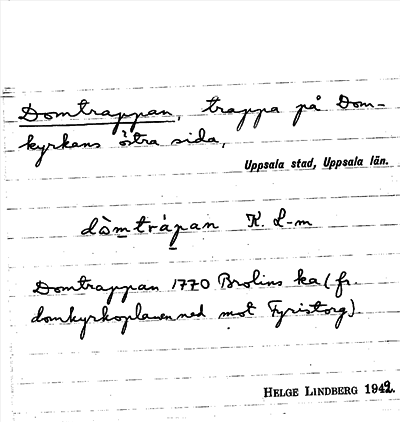 Domtrappan, trappa på Dom-
kyrkans östra sida,
Uppsala stad, Uppsala län.
dòmtrápan K. L-m
Domtrappan 1770 Brolins ka (fr.
domkyrkoplanen ned mot Fyristorg)
HELGE LINDBERG 1942.